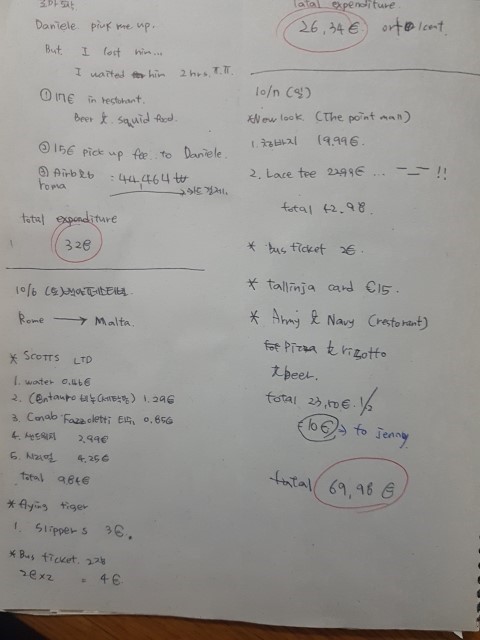 Daniele pick me up.
But I lost him...
I waited him 2 hrs. ㅠ.ㅠ.
① 17€ in restorant.
Beer & squid food.
② 15€ pick up fee.. to Daniele.
③ Airb&b : 44,464 ₩
roma
total expenditure
32€
10/6 (토)
Rome → Malta.
* SCOTTS LTD
1. water 0.66€
2. 1.29€
3. Conab Fazzoletti 티슈 0.85€
4. 샌드위치 2,99€
5. 시리얼 4.25€
total 9.84€
* flying tiger
1. Slippers 3€.
* Bus ticket. 2장
2€x2 = 4€
Total expenditure.
26,34€ or + 1 cent.
10/7 (일)
* New look. (The point man)
1. 청바지 19.99€.
2. Lace tee 22.99€ ... !!
total 42.98.
* Bus ticket 2€.
* tallinja card €15.
* Army & Navy (restorant)
Pizza & rigotto
& beer.
total 23,50€. 1/2
-10€ → to jenny
total 69,98 €